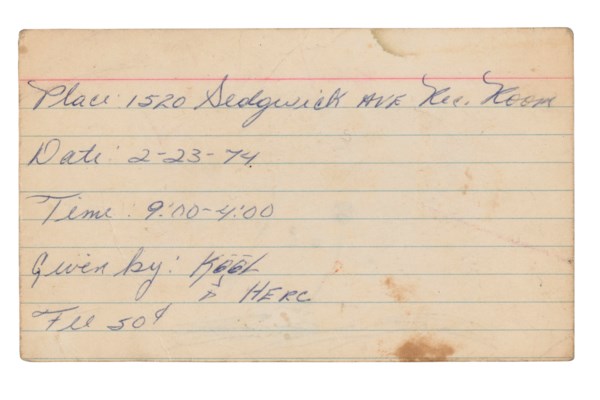 Place: 1520 Sedgwick AVE Rec. Room
Date: 2-23-74.
Time: 9:00-4:00
Given by: KOOL
D J HERC
Fee 50¢